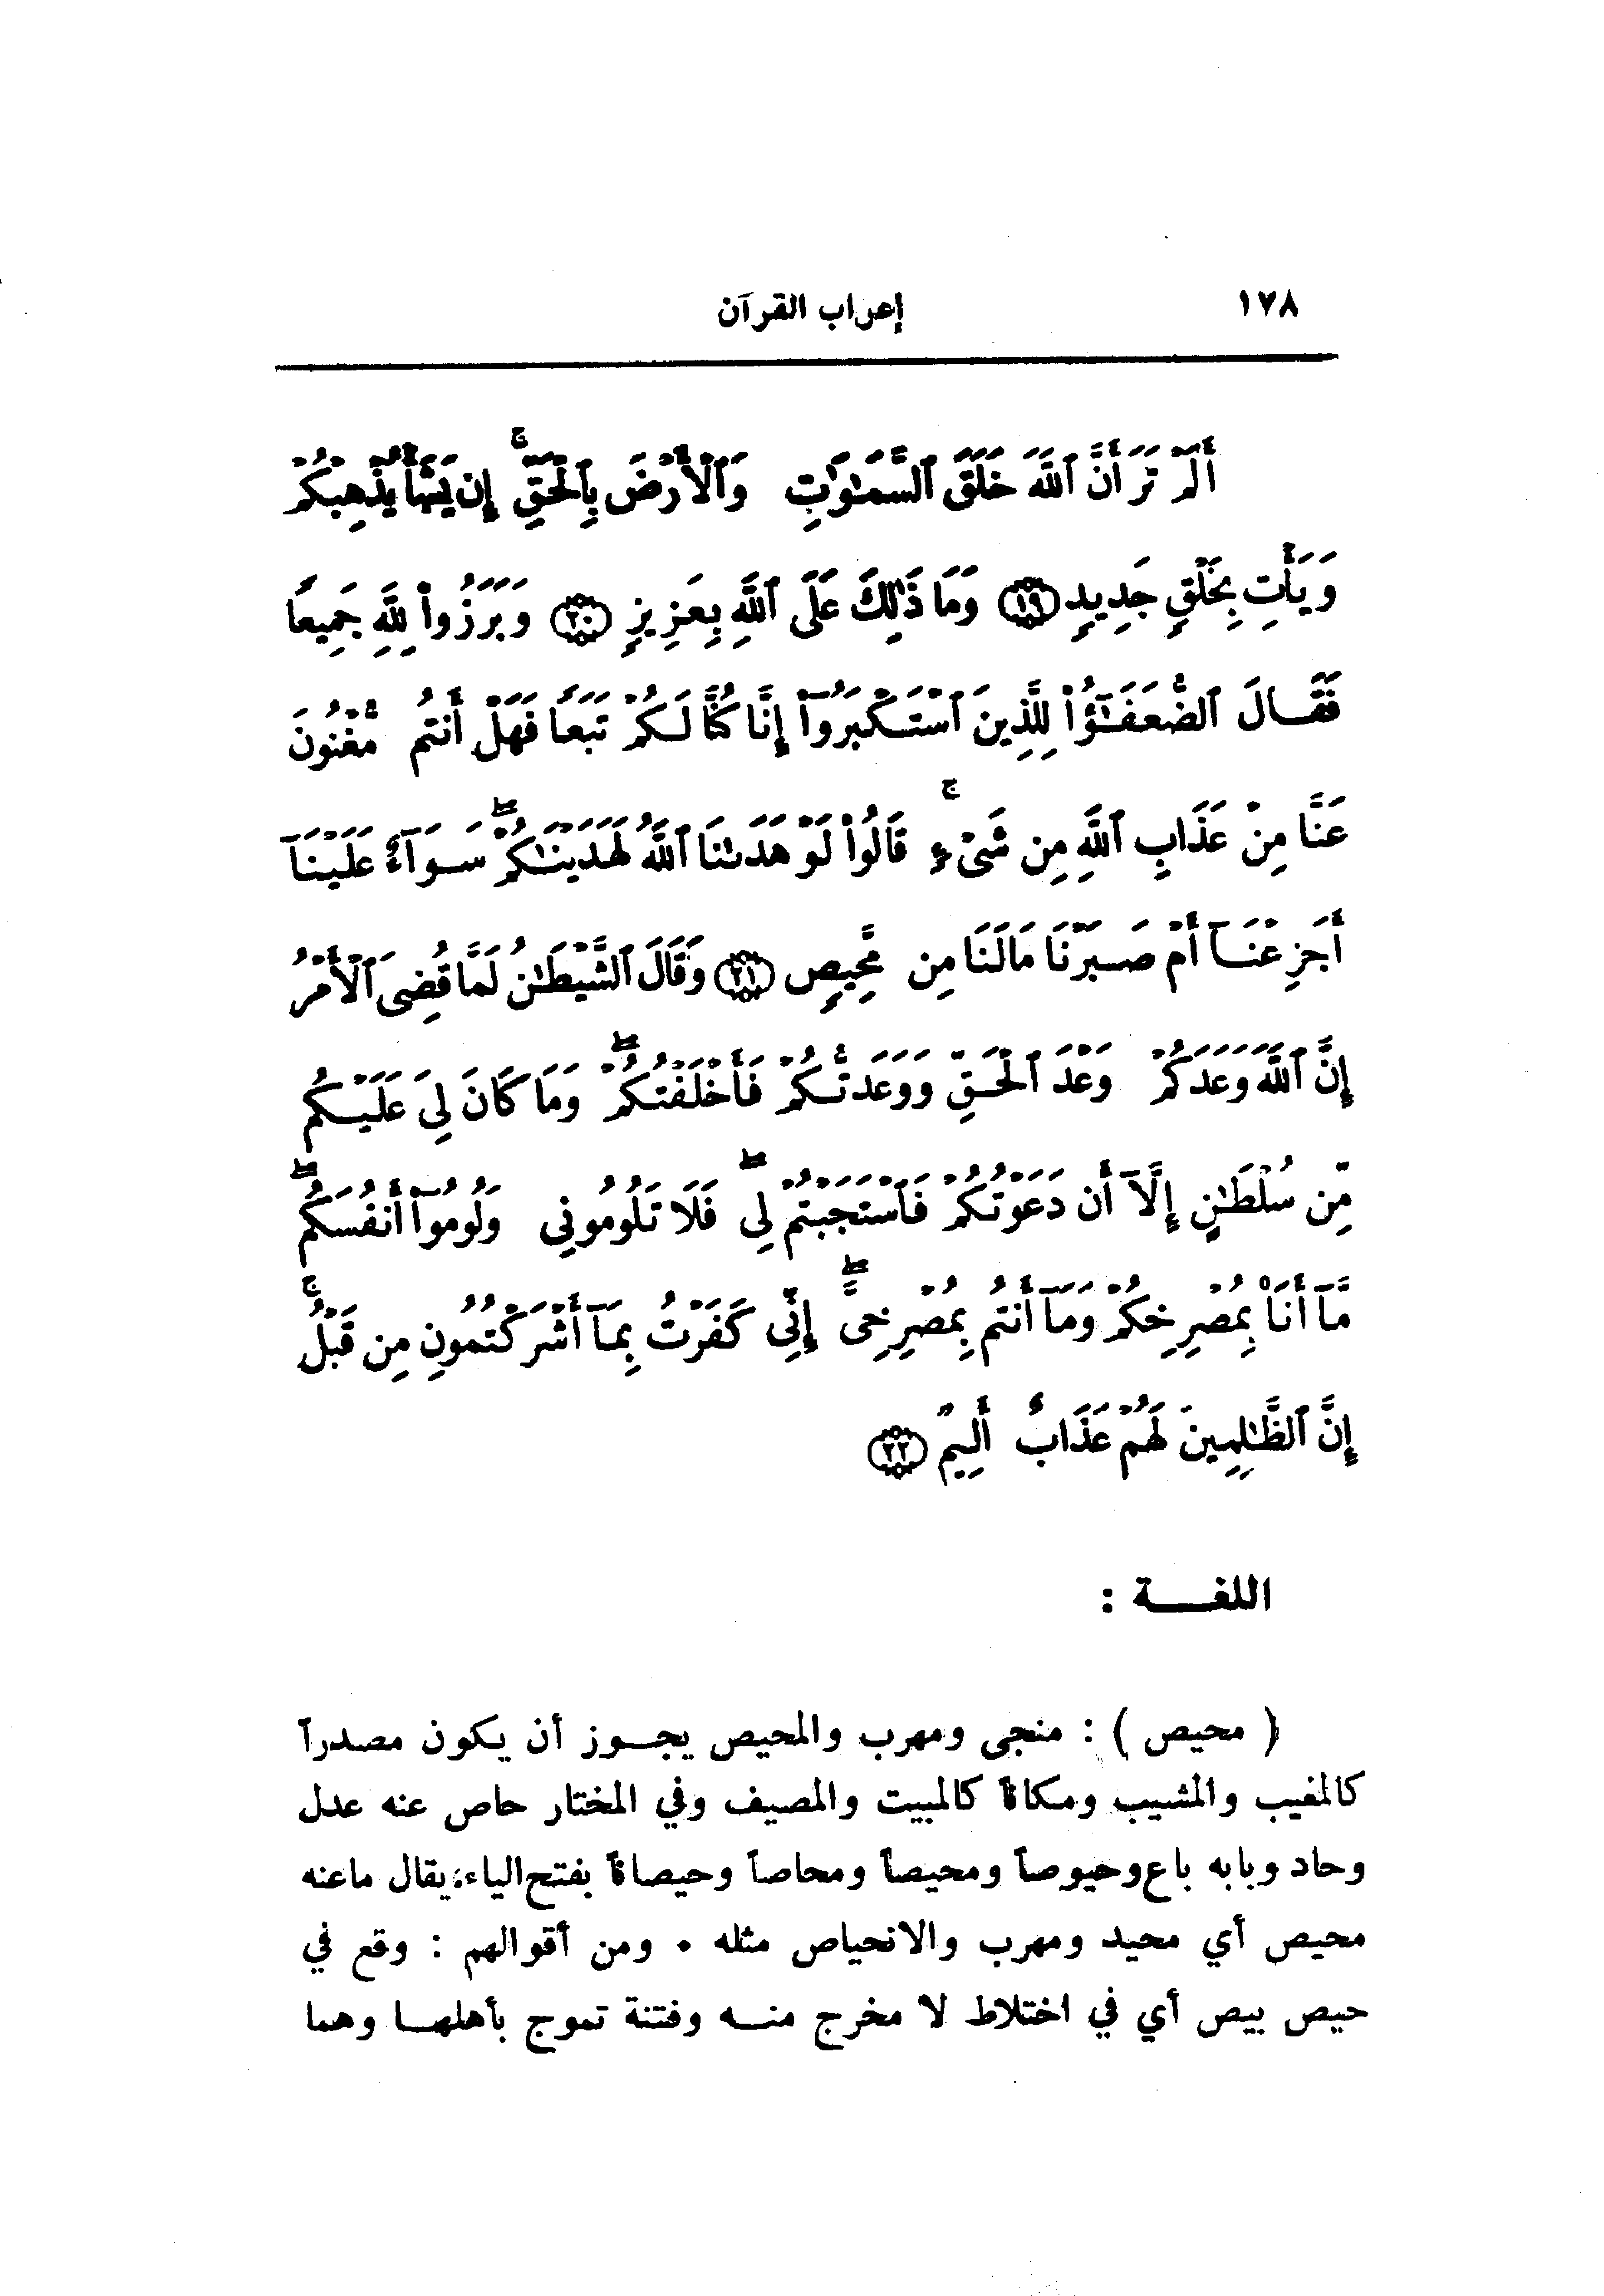 ١٧٨
إعراب القرآن
أَلَمْ تَرَ أَنَّ ٱللَّهَ خَلَقَ ٱلسَّمَـٰوَٰتِ وَٱلْأَرْضَ بِٱلْحَقِّ ۚ إِن يَشَأْ يُذْهِبْكُمْ
وَيَأْتِ بِخَلْقٍ جَدِيدٍ ١٩ وَمَا ذَٰلِكَ عَلَى ٱللَّهِ بِعَزِيزٍ ٢٠ وَبَرَزُوا۟ لِلَّهِ جَمِيعًا
فَقَالَ ٱلضُّعَفَـٰٓؤُا۟ لِلَّذِينَ ٱسْتَكْبَرُوٓا۟ إِنَّا كُنَّا لَكُمْ تَبَعًا فَهَلْ أَنتُم مُّغْنُونَ
عَنَّا مِنْ عَذَابِ ٱللَّهِ مِن شَىْءٍ ۚ قَالُوا۟ لَوْ هَدَىٰنَا ٱللَّهُ لَهَدَيْنَـٰكُمْ ۖ سَوَآءٌ عَلَيْنَآ
أَجَزِعْنَآ أَمْ صَبَرْنَا مَا لَنَا مِن مَّحِيصٍ ٢١ وَقَالَ ٱلشَّيْطَـٰنُ لَمَّا قُضِىَ ٱلْأَمْرُ
إِنَّ ٱللَّهَ وَعَدَكُمْ وَعْدَ ٱلْحَقِّ وَوَعَدتُّكُمْ فَأَخْلَفْتُكُمْ ۖ وَمَا كَانَ لِىَ عَلَيْكُم
مِّن سُلْطَـٰنٍ إِلَّآ أَن دَعَوْتُكُمْ فَٱسْتَجَبْتُمْ لِى ۖ فَلَا تَلُومُونِى وَلُومُوٓا۟ أَنفُسَكُم ۖ
مَّآ أَنَا۠ بِمُصْرِخِكُمْ وَمَآ أَنتُم بِمُصْرِخِىَّ ۖ إِنِّى كَفَرْتُ بِمَآ أَشْرَكْتُمُونِ مِن قَبْلُ ۚ
إِنَّ ٱلظَّـٰلِمِينَ لَهُمْ عَذَابٌ أَلِيمٌ ٢٢
اللغـــة :
( محيص ) : منجى ومهرب والمحيص يجــوز أن يكون مصدراً
كالمغيب والمشيب ومكاناً كالمبيت والمصيف وفي المختار حاص عنه عدل
وحاد وبابه باع وحيوصاً ومحيصاً ومحاصاً وحيصاناً بفتح الياء، يقال ماعنه
محيص أي محيد ومهرب والانحياص مثله . ومن أقوالهم : وقع في
حيص بيص أي في اختلاط لا مخرج منــه وفتنة تموج بأهلهــا وهما